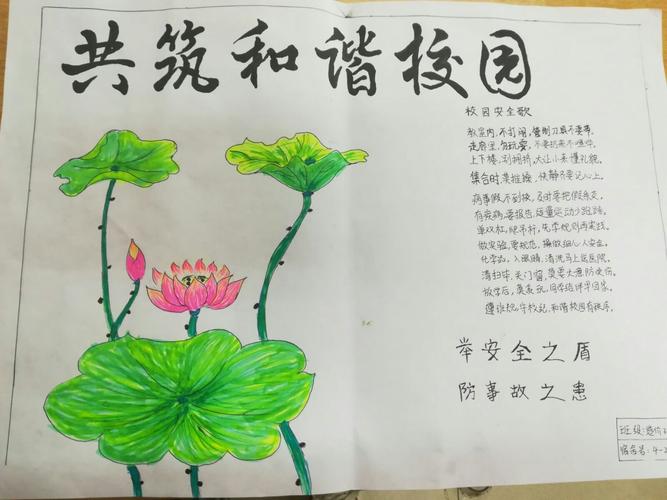 共筑和谐校园
校园安全歌
教室内,不打闹,管制刀具不要带.
走廊里,勿玩耍,不要扔来不喧哗.
上下楼,别拥挤,大让小来懂礼貌.
集合时,莫推搡,快静齐要记心上.
病事假,不到校,及时要把假条交.
有疾病,要报告,适量运动少跑跳.
单双杠,爬吊杆,先学规则再实践.
做实验,要规范,操做细心人安全.
化学品,入眼睛,清洗马上送医院.
清扫毕,关门窗,莫要大意防受伤.
放学后,莫贪玩,同学结伴早回家.
遵班规,守校纪,和谐校园有秩序.
举安全之盾
防事故之患
班级:造价
宿舍号:4-2